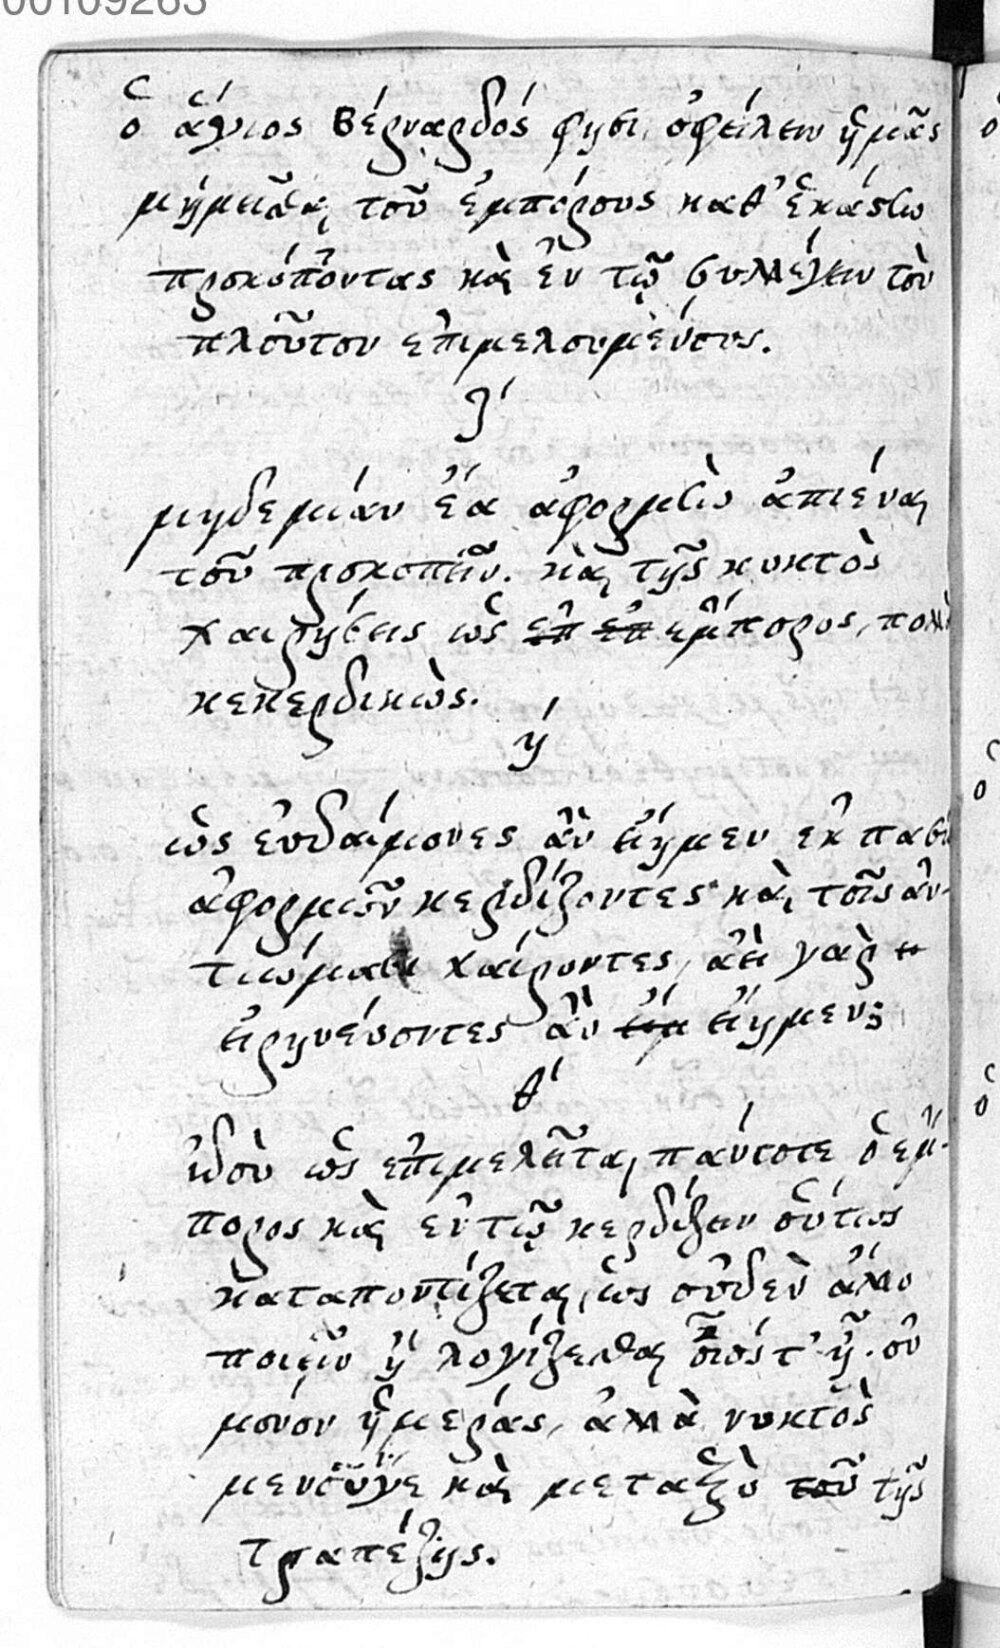 00109263
ὁ ἅγιος Βέρναρδός φησι ὀφείλειν ἡμᾶς
μιμεῖσθαι τοῦ ἐμπόρους καθ' ἑκάστω
προκόπτοντας καὶ ἐν τῷ συλλέγειν τὸν
πλοῦτον ἐπιμελουμένους.
ζ'
μηδεμίαν ἔα ἀφορμὼ ἀπιέναι
τοῦ προκοπεῖν. καὶ τῆς νυκτὸς
χαιρήσεις ὡς ἔμπορος, πολλὰ
κεκερδικὼς.
ή
ὡς εὐδαίμονες ἂν εἴημεν ἐκ πασῶ
ἀφορμῶν κερδίζοντες καὶ τοῖς ἀν-
τιώμασι χαίροντες, ἀεὶ γὰρ
εἰρηνεύοντες ἂν εἴημεν;
θ'
ἰδοὺ ὡς ἐπιμελεῖται πάντοτε ὁ ἔμ-
πορος καὶ ἐν τῷ κερδίζειν οὕτως
καταποντίζεται, ὡς οὐδὲν ἄλλο
ποιεῖν ἢ λογίζεσθαι οἷός τ' ᾖ. οὐ
μόνον ἡμέρας, ἀλλὰ νυκτὸς
μενοῦγε καὶ μεταξὺ τῆς
τραπέζης.